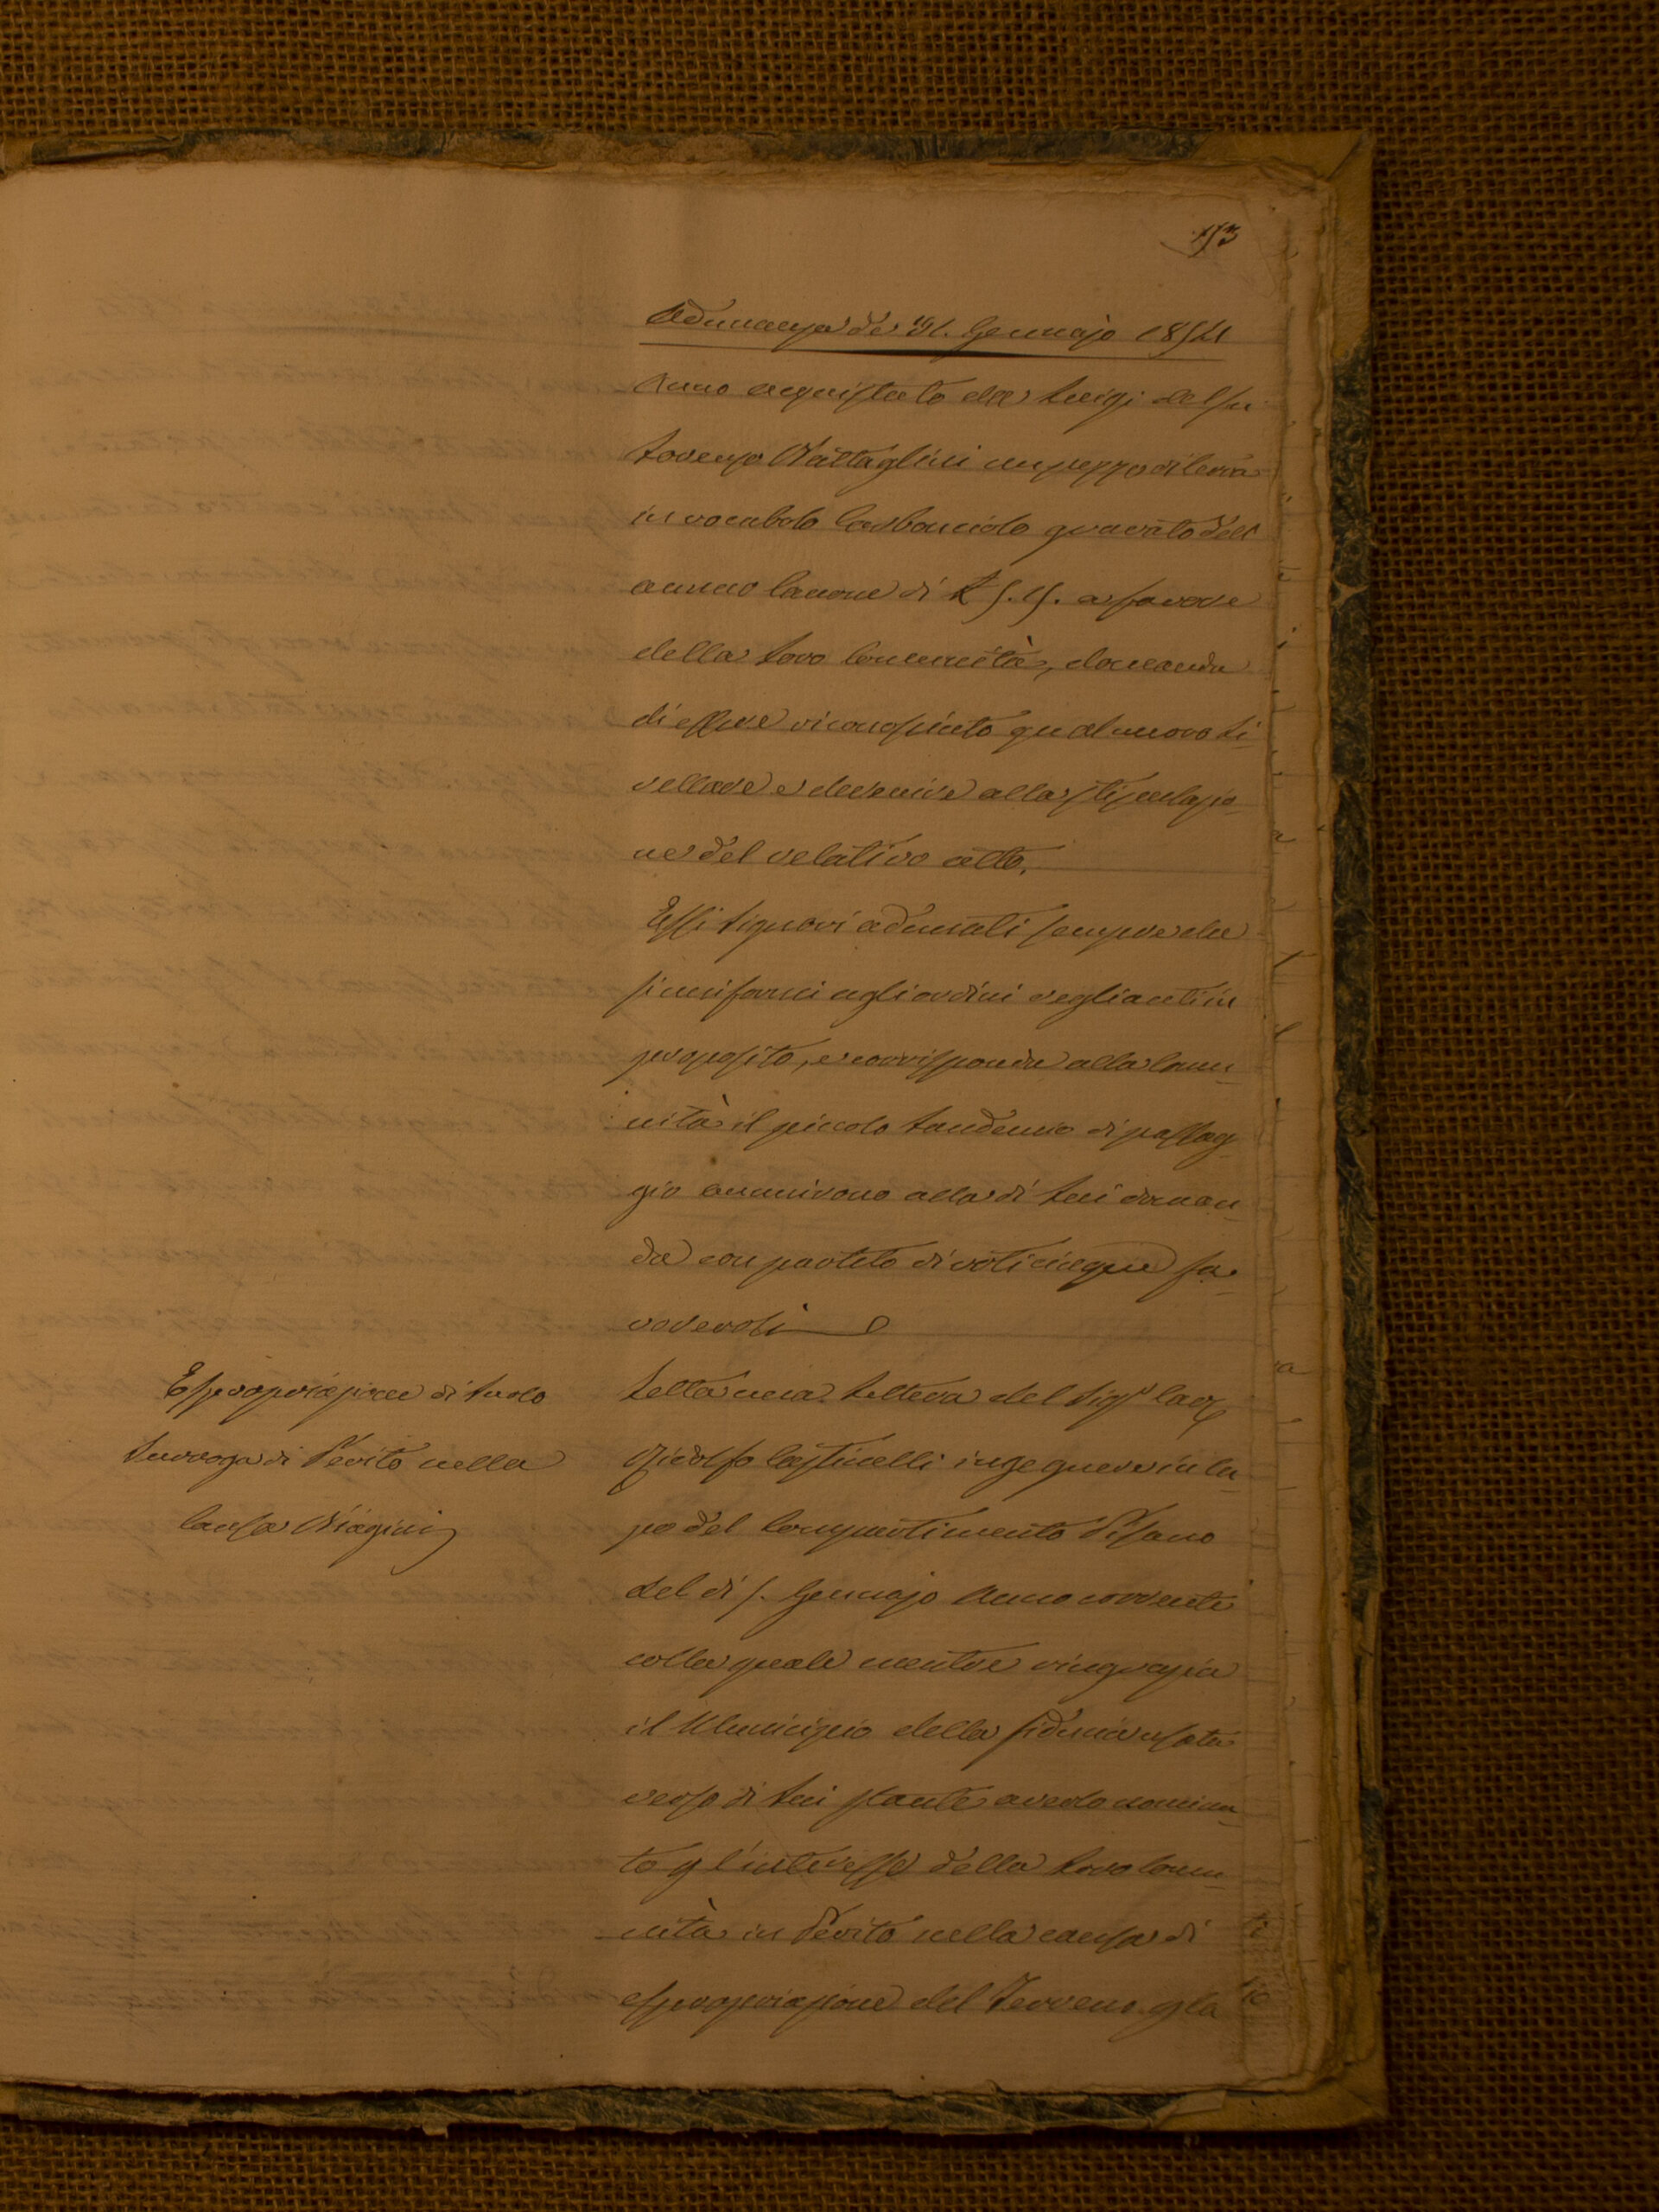 Adunanza de 31. Gennajo 1854
Anno acquistato da Luigi del fu
Lorenzo Battaglini un pezzo di terra
in vocabolo Carbonciolo gravato dell
annuo Canone di £ 5.15. a favore
della loro Comunità, domanda
di essere riconosciuto qual nuovo Li-
vellare e devenire alla stipulazio-
ne del relativo atto.
Essi Signori adunati sempre che
si uniformi agli ordini veglianti in
proposito, e corrisponda alla Comu-
nità il piccolo Laudemio di passag-
gio annuirono alla di Lui doman-
da con partito di voti cinque fa-
vorevoli
Espropriazione di Suolo
Surroga di Perito nella
Causa Biagini
Letta una Lettera del Sigr Cav
Ridolfo Castinelli ingegnere in Ca-
po del Compartimento Pisano
del di 5. Gennajo Anno corrente
colla quale mentre ringrazia
il Municipio della fiducia usata
verso di Lui stante averlo nomina-
to gl'interesse della loro Comu-
nità in Perito nella causa di
espropriazione del Terreno